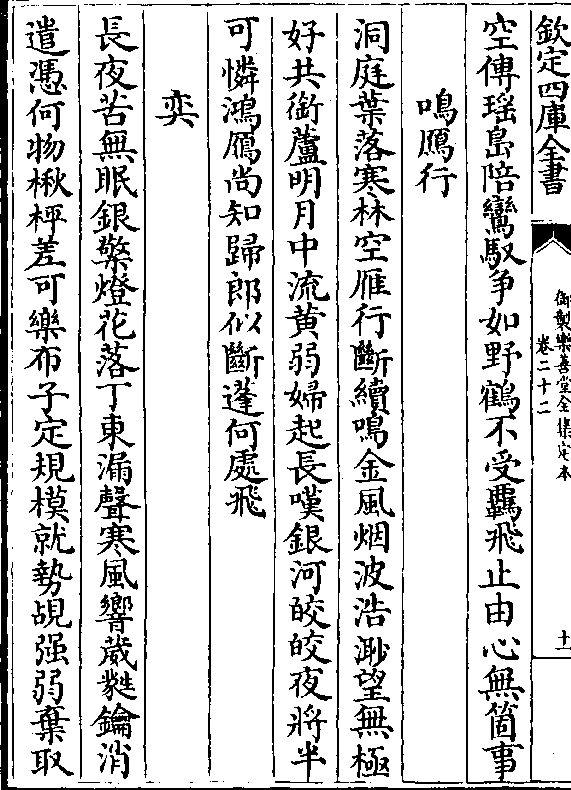 欽定四庫全書
御製樂善堂全集定本
卷二十二
十一
空傳瑤島陪鸞馭争如野鶴不受羈飛止由心無箇事
鳴鴈行
洞庭葉落寒林空雁行斷續鳴金風烟波浩渺望無極
好共銜蘆明月中流黄弱婦起長嘆銀河皎皎夜將半
可憐鴻鴈尚知歸郎似斷蓬何處飛
奕
長夜苦無眠銀檠燈花落丁東漏聲寒風響葳蕤鑰消
遣憑何物楸枰差可樂布子定規模就勢覘强弱棄取